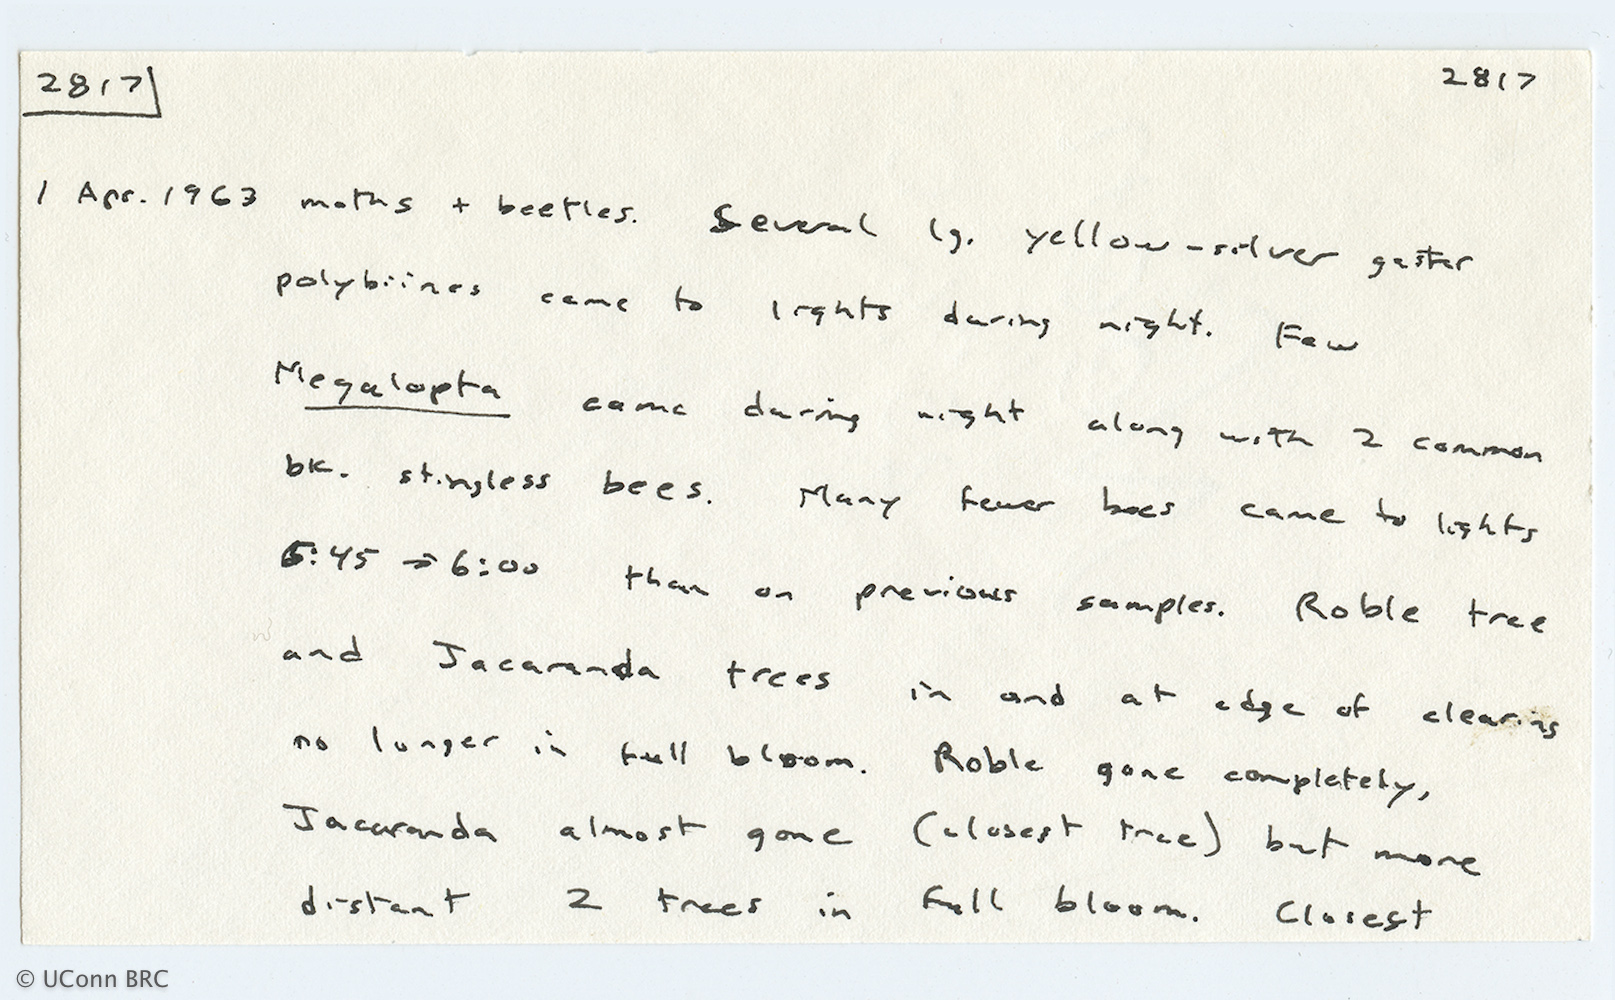 2817 2817
1 Apr. 1963 moths + beetles. Several lg. yellow-silver gaster
polybiines came to lights during night. Few
Megalopta came during night along with 2 common
bk. stingless bees. Many fewer bees came to lights
5:45 → 6:00 than on previous samples. Roble tree
and Jacaranda trees in and at edge of clearing
no longer in full bloom. Roble gone completely,
Jacaranda almost gone (closest tree) but more
distant 2 trees in full bloom. Closest
© UConn BRC